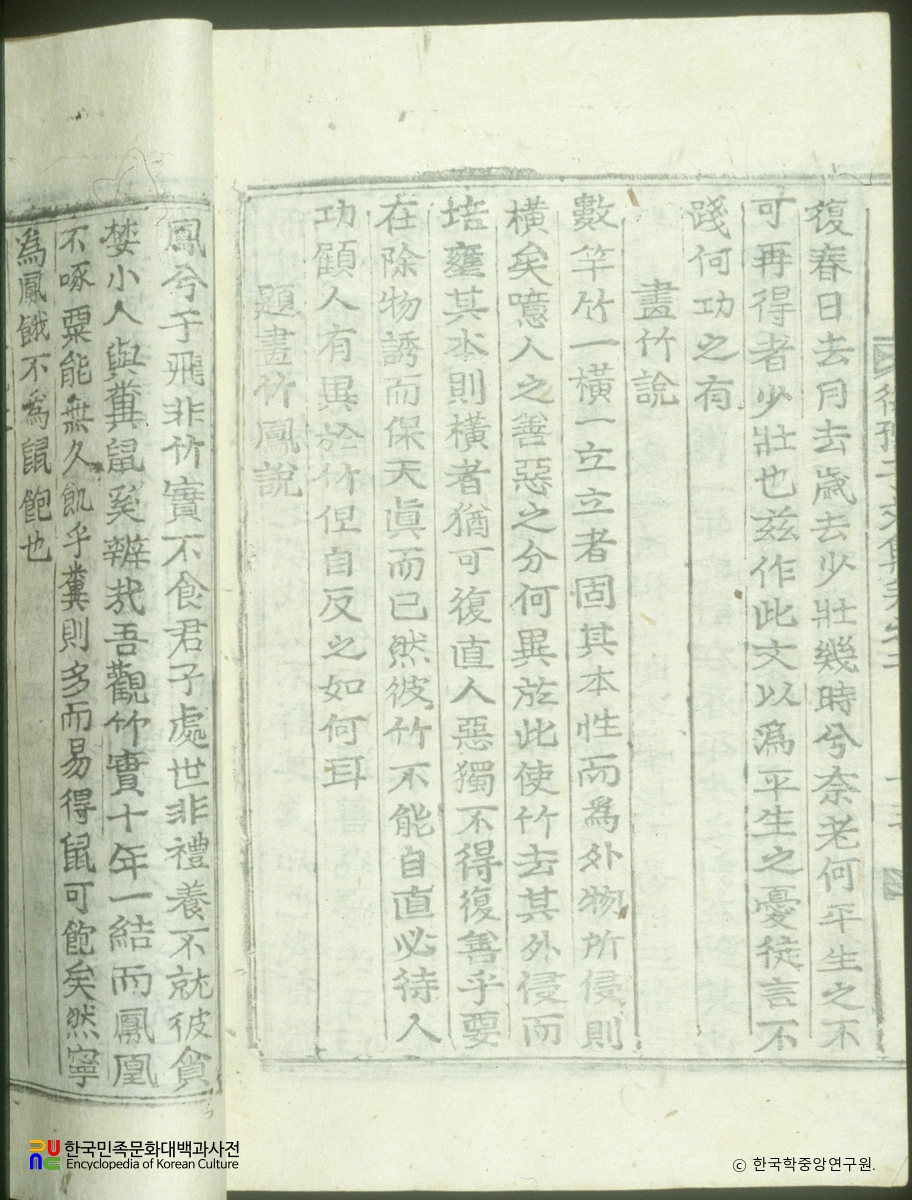 復春日去月去歲去少壯幾時兮奈老何平生之不
可再得者少壯也玆作此文以爲平生之憂徒言不
踐何功之有
畫竹說
數竿竹一橫一立立者固其本性而爲外物所侵則
橫矣噫人之善惡之分何異於此使竹去其外侵而
培壅其本則橫者猶可復直人惡獨不得復善乎要
在除物誘而保天眞而已然彼竹不能自直必待人
功顧人有異於竹但自反之如何耳
題畫竹鳳說
鳳兮于飛非竹實不食君子處世非禮養不就彼貪
婪小人與糞鼠奚辨哉吾觀竹實十年一結而鳳凰
不啄粟能無久飢乎糞則多而易得鼠可飽矣然寧
爲鳳餓不爲鼠飽也
한국민족문화대백과사전
Encyclopedia of Korean Culture
© 한국학중앙연구원.